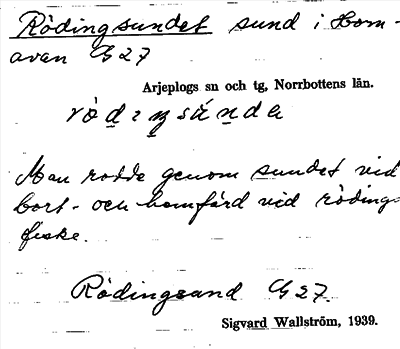 Rödingsundet sund i Horn-
avan G27
Arjeplogs sn och tg, Norrbottens län.
Man rodde genom sundet vid
bort- och hemfärd vid rödings-
fiske.
Rödingsund G27.
Sigvard Wallström, 1939.